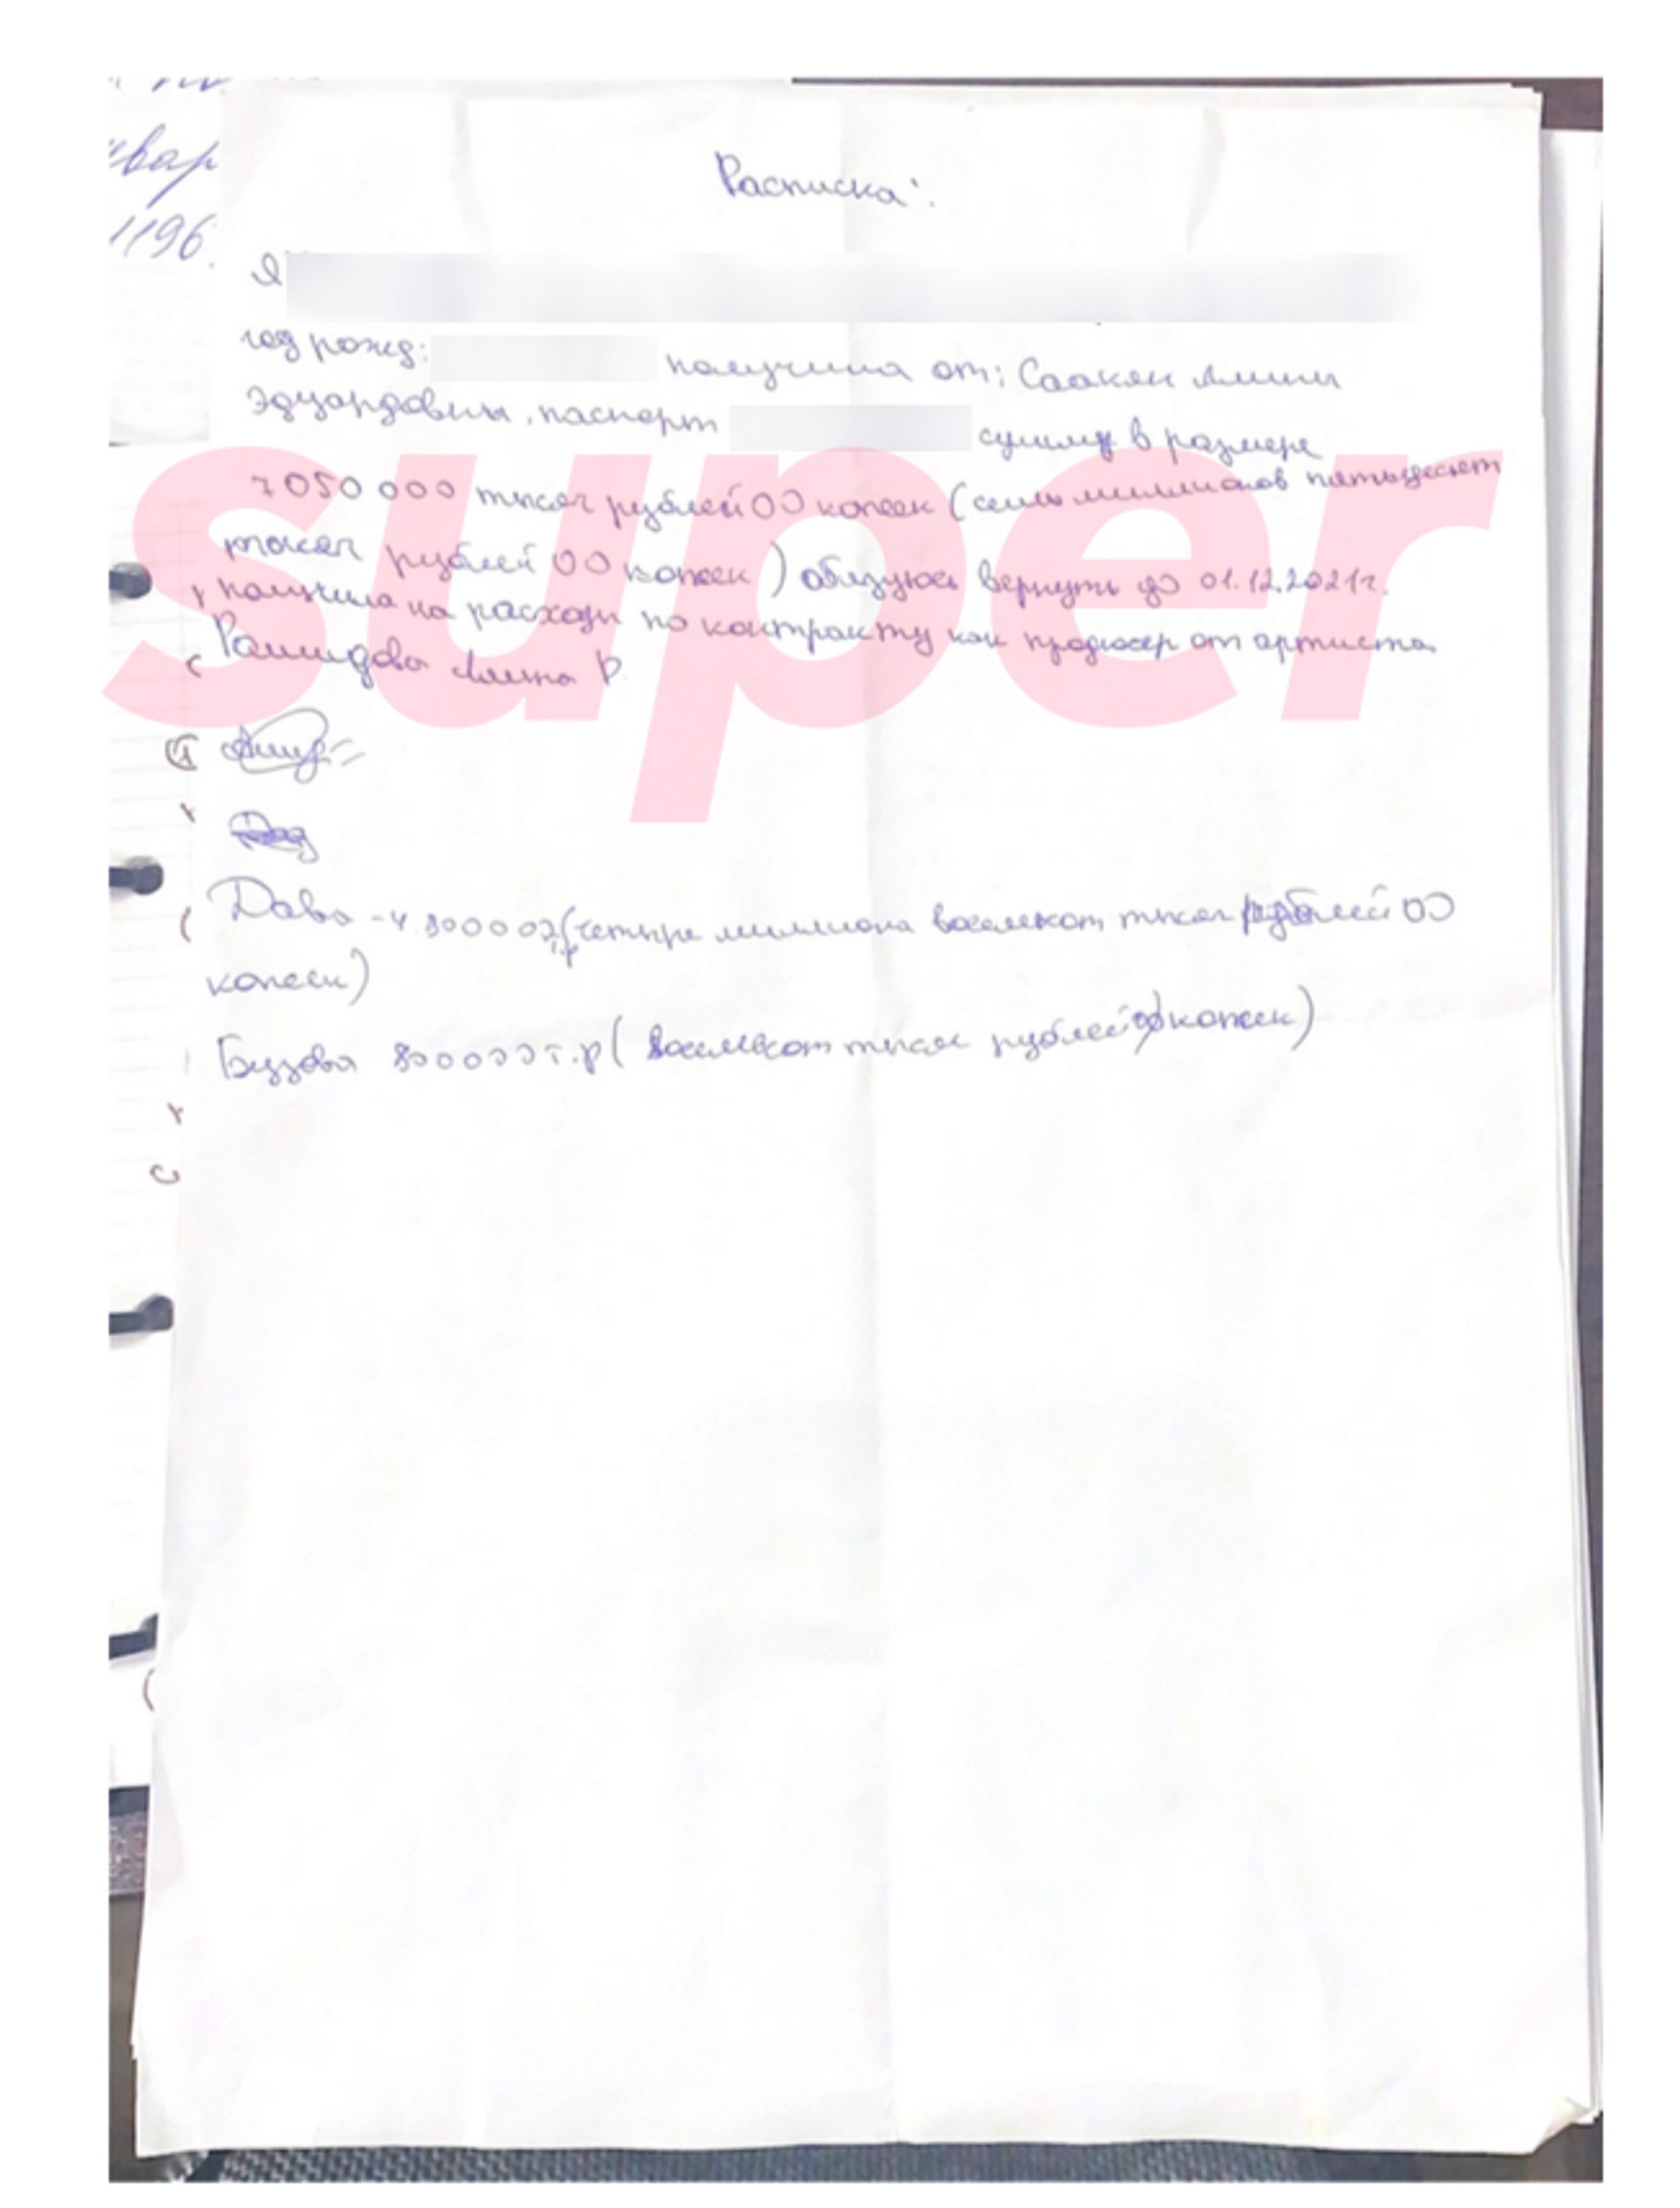 вар
1196.
Расписка:
Я
год рожд: получила от: Саакян Алины
Эдуардовны, паспорт сумму в размере
7050 000 тысяч рублей 00 копеек (семь миллионов пятьдесят
тысяч рублей 00 копеек) обязуюсь вернуть до 01.12.2021г.
получила на расходы по контракту как продюсер от артиста
Рашидова Алина Р
Дава - 4.800000 т.р (четыре миллиона восемьсот тысяч рублей 00
копеек)
Бузова 800000 т.р ( восемьсот тысяч рублей 00 копеек)
super